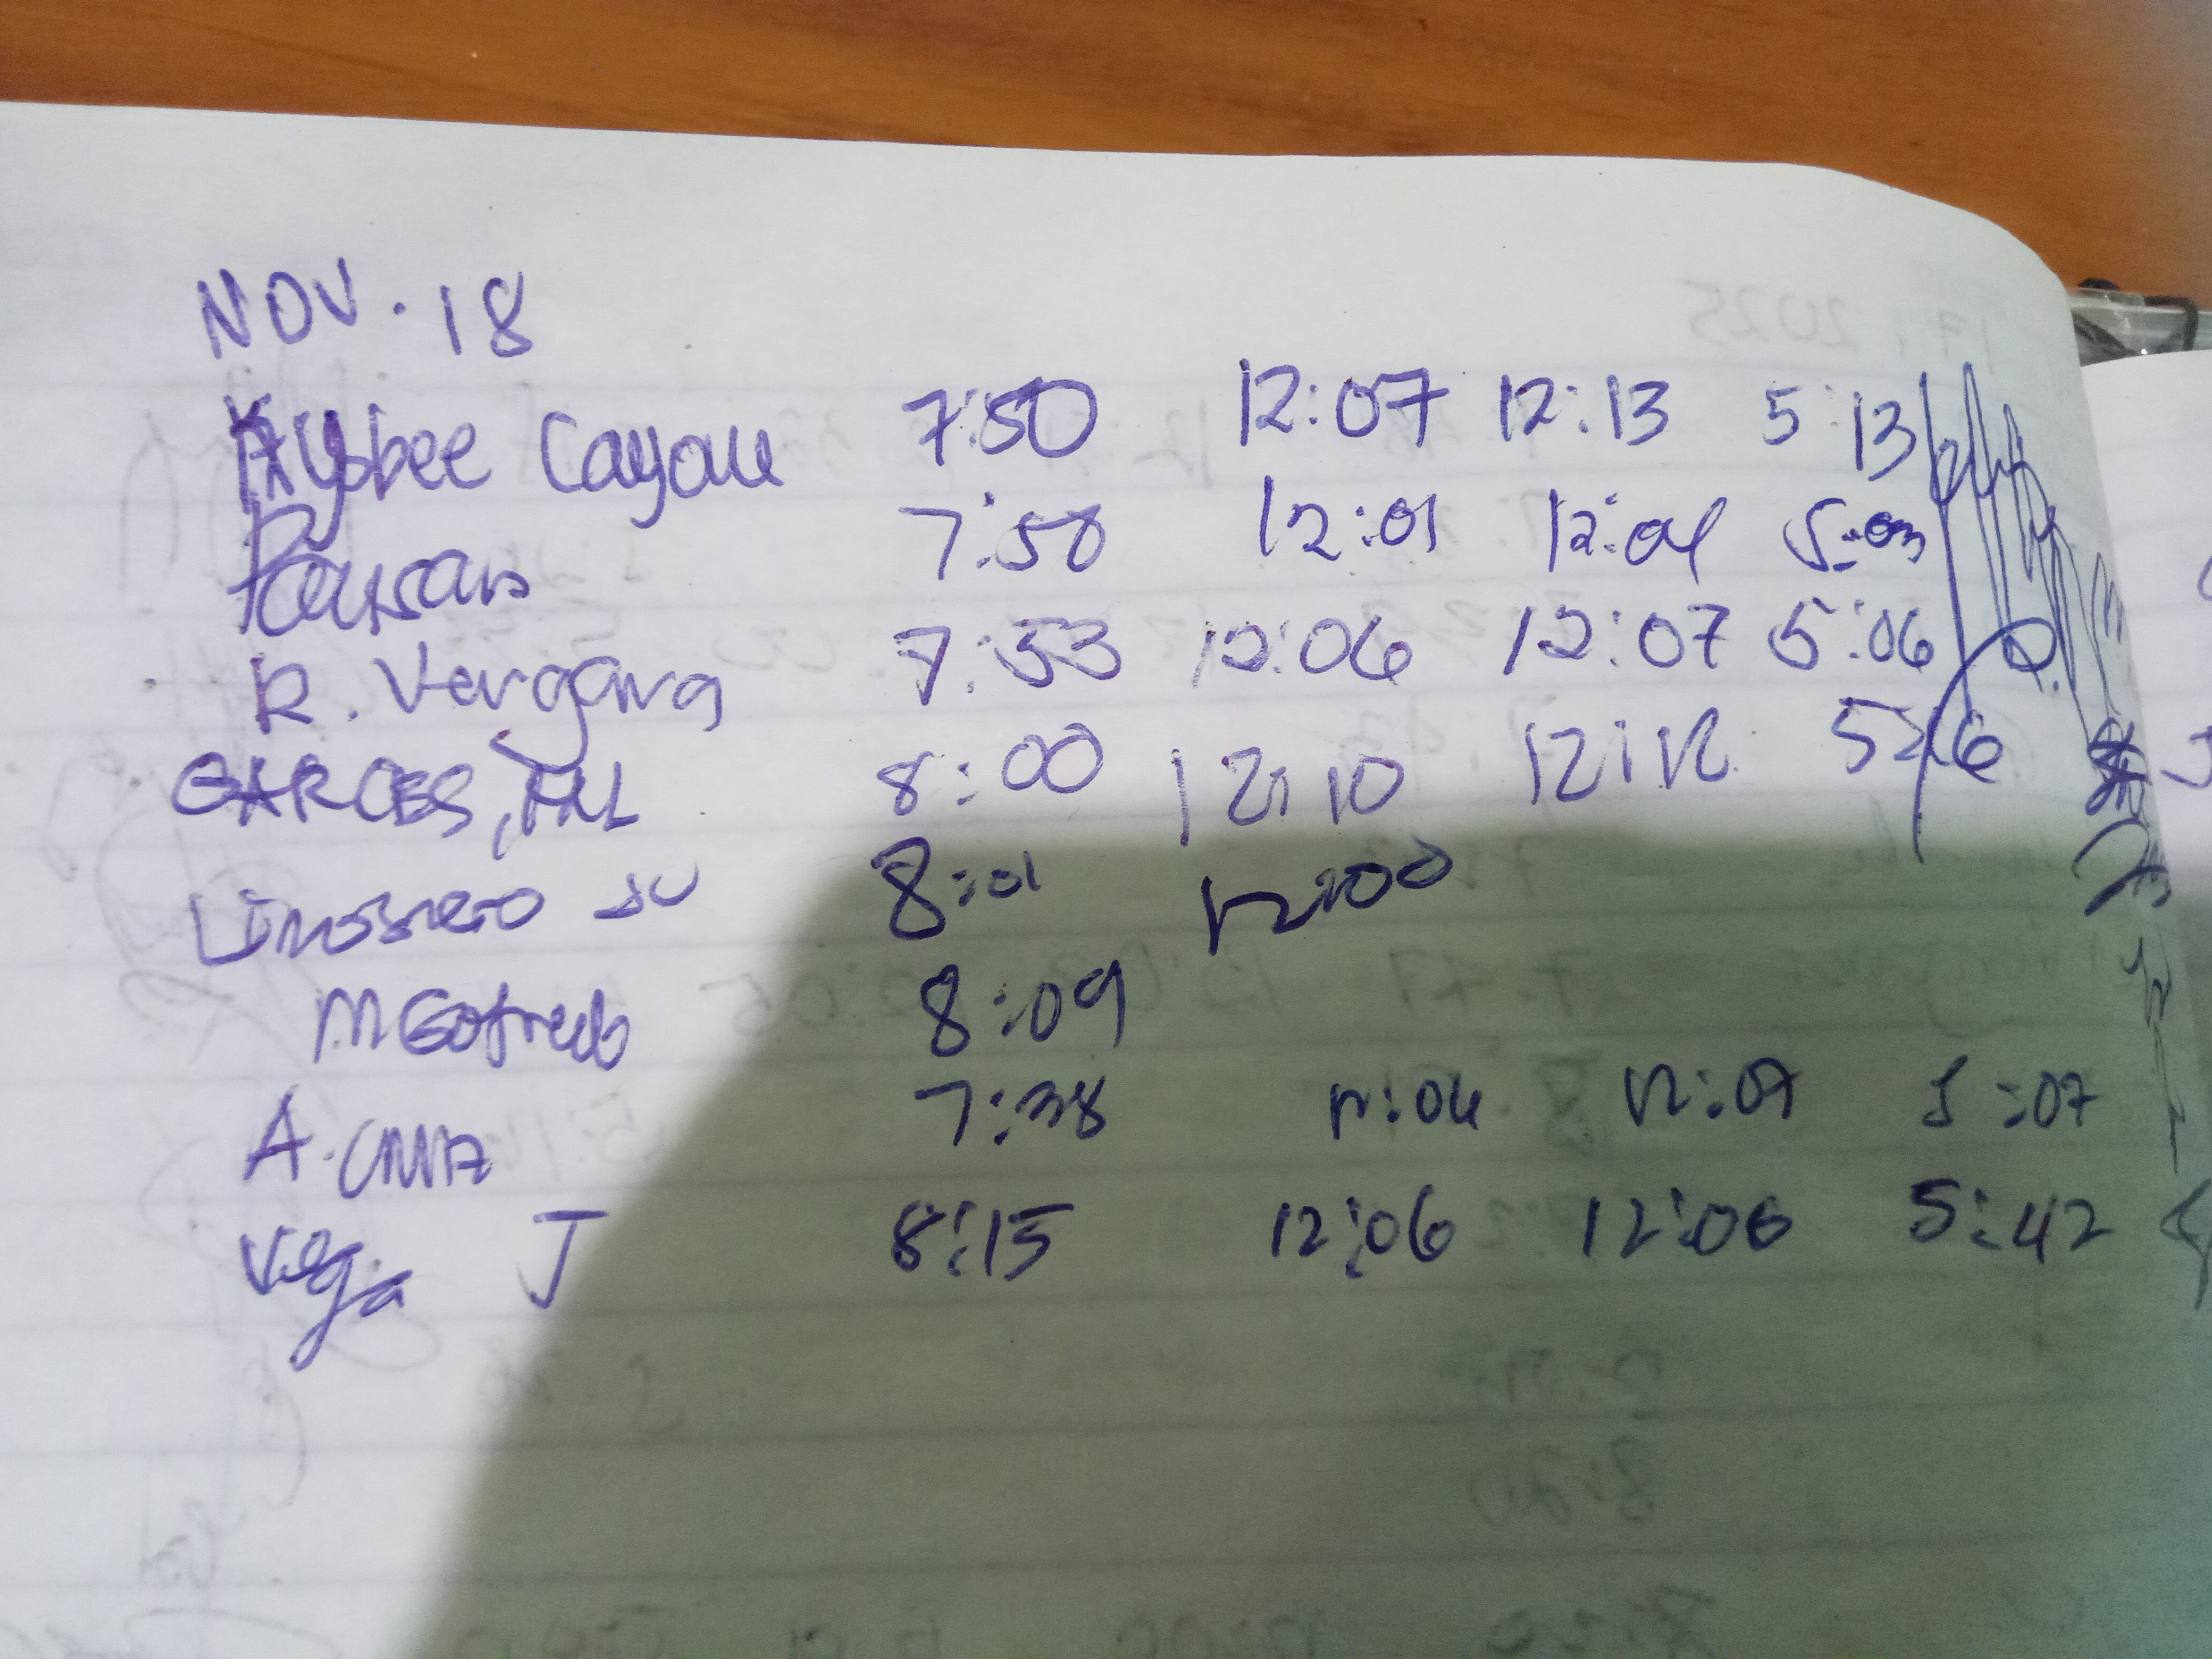 NOV. 18
Kaysbee Cayau 7:50 12:07 12:13 5:13
7:58 12:01 12:04 5:03
R. Vergara 7:53 12:06 12:07 5:06
GARCES, 8:00 12:10 12:12
8:01 12:00
M Gofredo 8:09
A. 7:38 12:04 12:07 5:07
Vega J 8:15 12:06 12:06 5:42